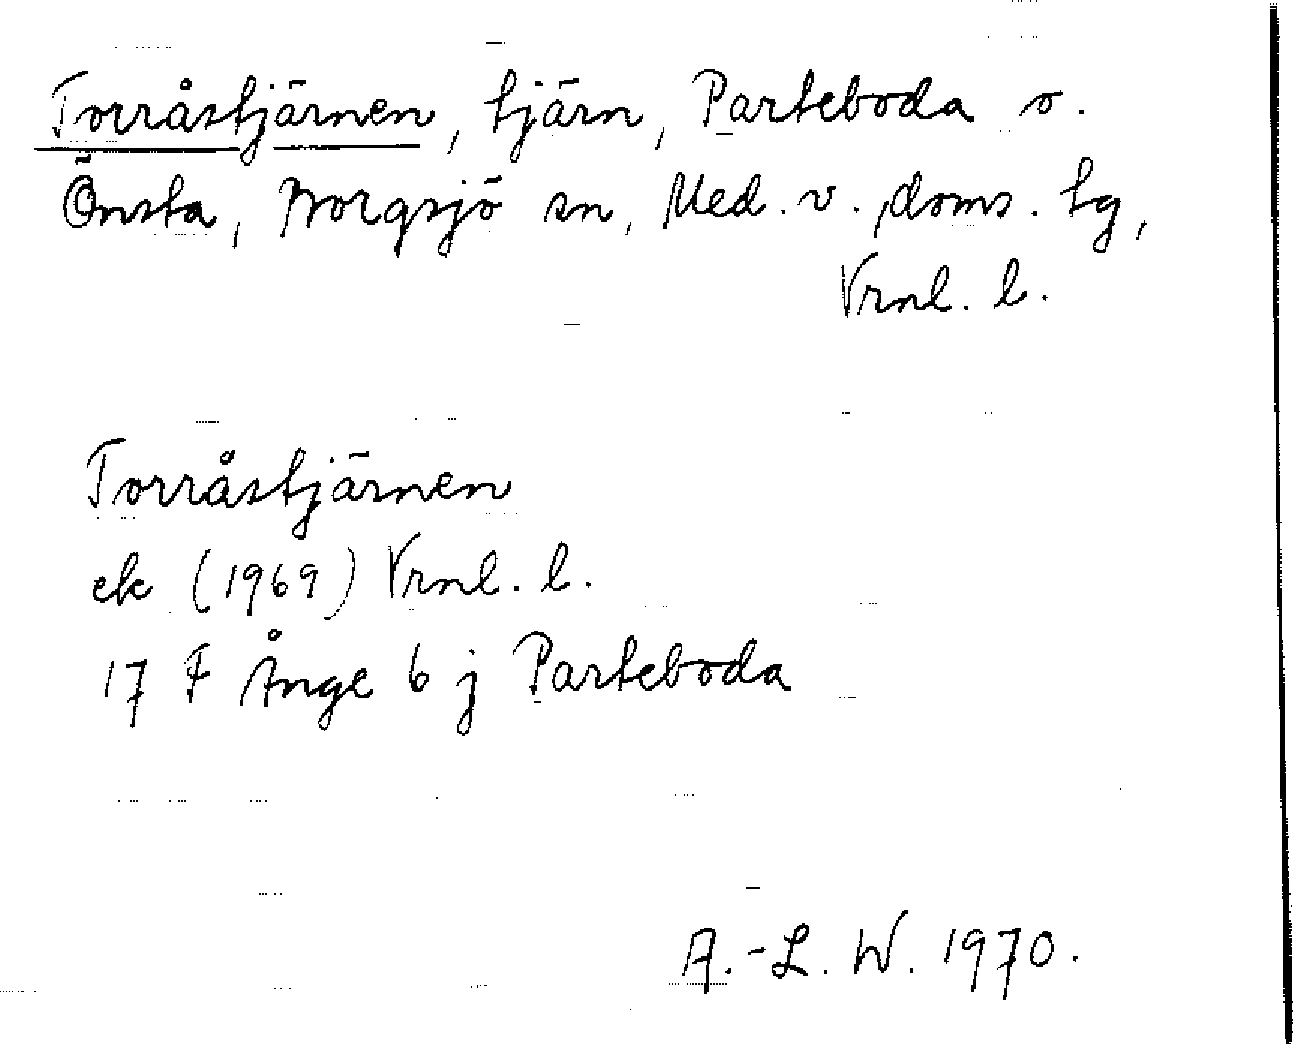 Torråstjärnen, tjärn, Parteboda o.
Önsta, Borgsjö sn, Med. v. doms. tg,
Vrnl. l.
Torråstjärnen
ek (1969) Vrnl. l.
17 F Ånge 6 j Parteboda
A.-L. W. 1970.